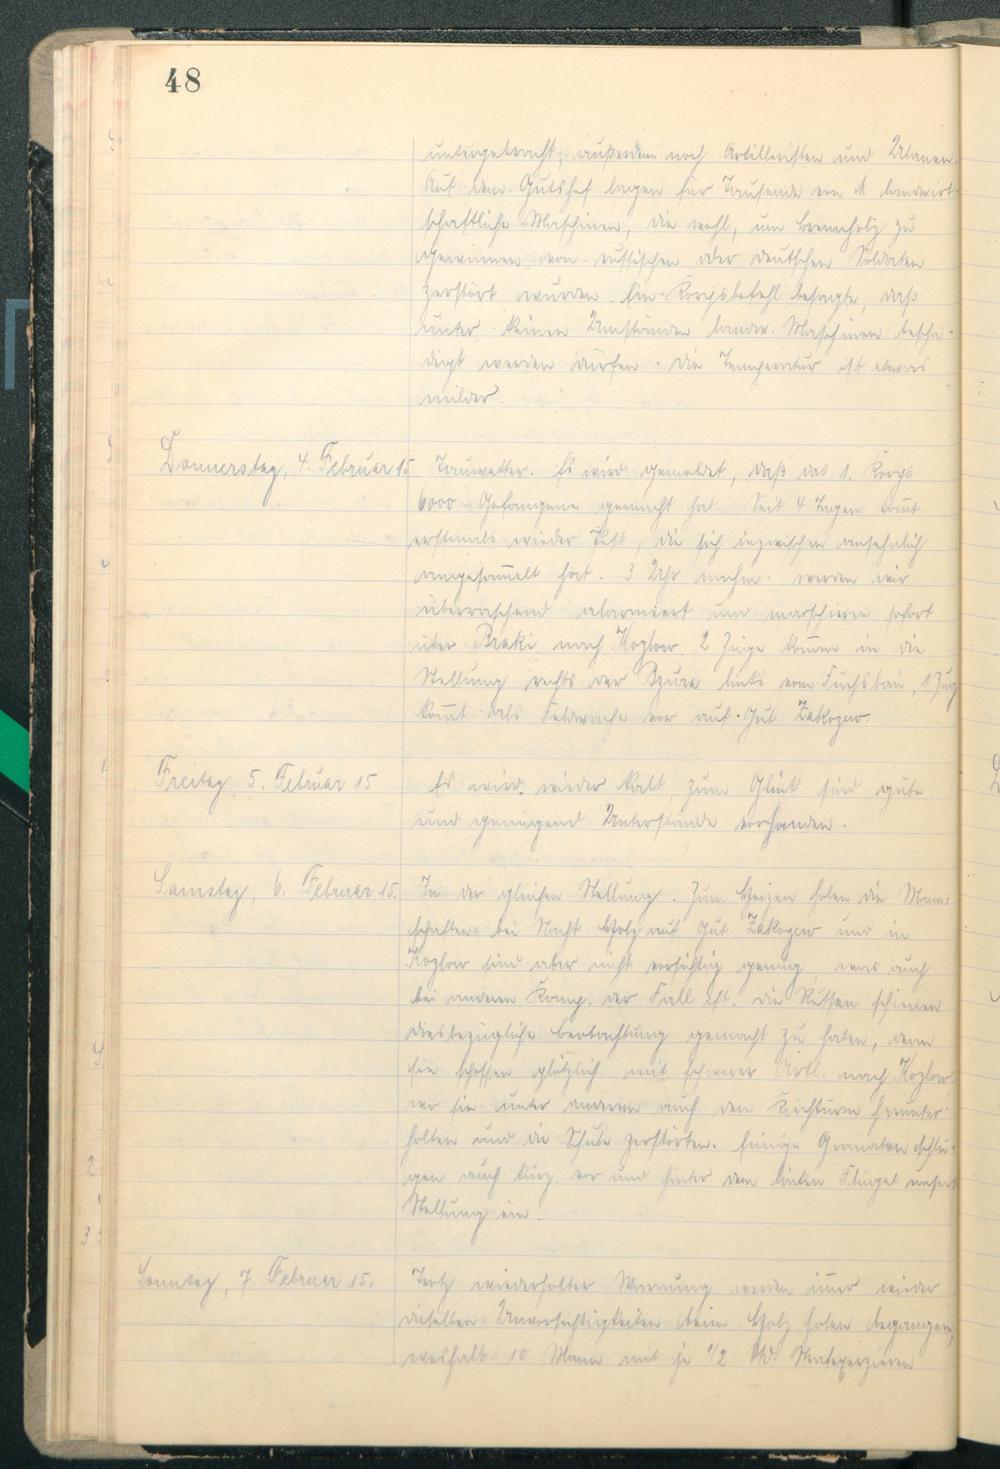 48
untergebracht, außerdem noch Artilleristen und Ulanen.
Auf dem Gutshof liegen für Tausende von M landwirt-
schaftliche Maschinen, die wohl, um Brennholz zu
gewinnen von russischen oder deutschen Soldaten
zerstört wurden. Ein Korpsbefehl besagte, daß
unter keinen Umständen landw. Maschinen beschä-
digt werden dürfen. Die Temperatur ist etwas
milder.
Donnerstag, 4. Februar 15 Tauwetter. Es wird gemeldet, daß das 1. Korps
6000 Gefangene gemacht hat. Seit 4 Tagen kom̅t
erstmals wieder Post, die sich inzwischen ansehnlich
angesam̅elt hat. 3 Uhr nachm. werden wir
überraschend alarmiert und marschieren sofort
über Braki nach Kozlow. 2 Züge kom̅en in die
Stellung rechts der Bzura links vom Fuchsbau, 1 Zug
kom̅t als Feldwache vor auf Gut Zakozew.
Freitag, 5. Februar 15. Es wird wieder kalt, zum Glück sind gute
und genügend Unterstände vorhanden.
Samstag, 6. Februar 15. In der gleichen Stellung. Zum Heizen holen die Mann-
schaften bei Nacht Holz auf Gut Zakozew und in
Kozlow sind aber nicht vorsichtig genug, was auch
bei anderen Komp. der Fall ist. Die Russen schienen
diesbezügliche Beobachtung gemacht zu haben, denn
sie schossen plötzlich mit schwerer Artl. nach Kozlow
wo sie unter anderem auch den Kirchturm herunter-
holten und die Schule zerstörten. Einige Granaten schlu-
gen auch kurz vor und hinter dem linken Flügel unserer
Stellung ein.
Sonntag, 7. Februar 15. Trotz wiederholter Warnung werden im̅er wieder
dieselben Unvorsichtigkeiten beim Holz holen begangen,
weshalb 10 Mann mit je 1/2 Std. Strafexerzieren